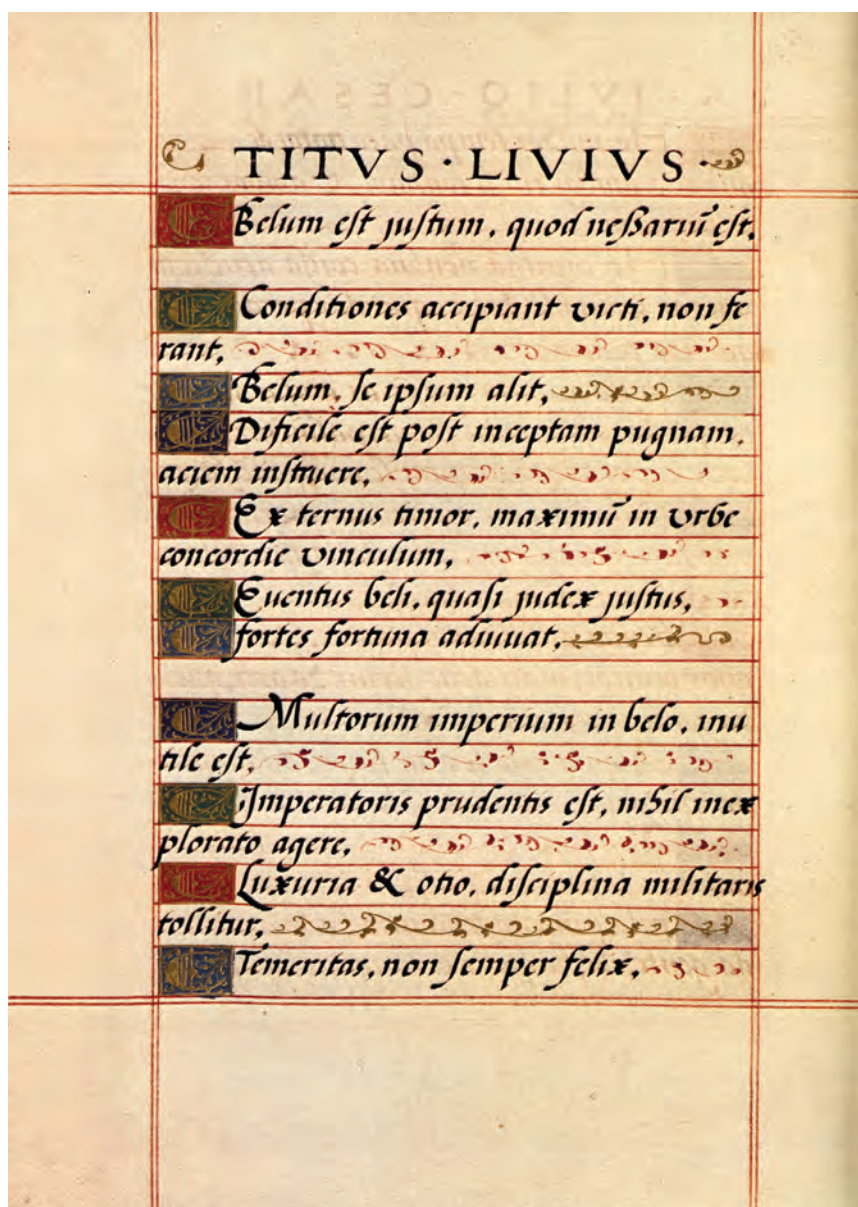 TITVS · LIVIVS ·
Belum est justum, quod neßariũ est.
Conditiones accipiant victi, non fe
rant,
Belum, se ipsum alit,
Dificile est post inceptam pugnam,
aciem instruere,
Ex ternus timor, maximũ in vrbe
concordie vinculum,
Euentus beli, quasi judex justus,
fortes fortuna adiuuat,
Multorum imperium in belo, inu
tile est,
Imperatoris prudentis est, nihil inex
plorato agere,
Luxuria & otio, disciplina militaris
tollitur,
Temeritas, non semper felix,